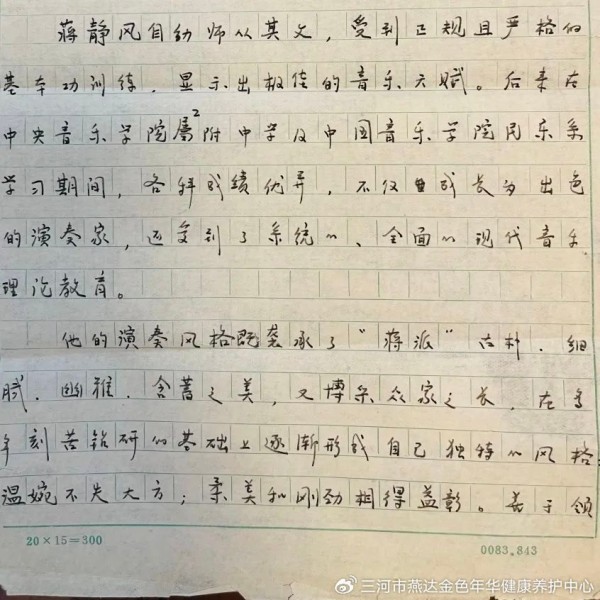 蒋静风自幼师从其父，受到正规且严格的
基本功训练，显示出极佳的音乐天赋。后来在
中央音乐学院属附中学及中国音乐学院民乐系
学习期间，各科成绩优异，不仅成长为出色
的演奏家，还受到了系统的、全面的现代音乐
理论教育。
他的演奏风格既袭承了“蒋派”古朴．细
腻．幽雅．含蓄之美，又博采众家之长，在多
年刻苦钻研的基础上逐渐形成自己独特的风格：
温婉不失大方；柔美和刚劲相得益彰。善于领
20×15=300
0083.843
三河市燕达金色年华健康养护中心